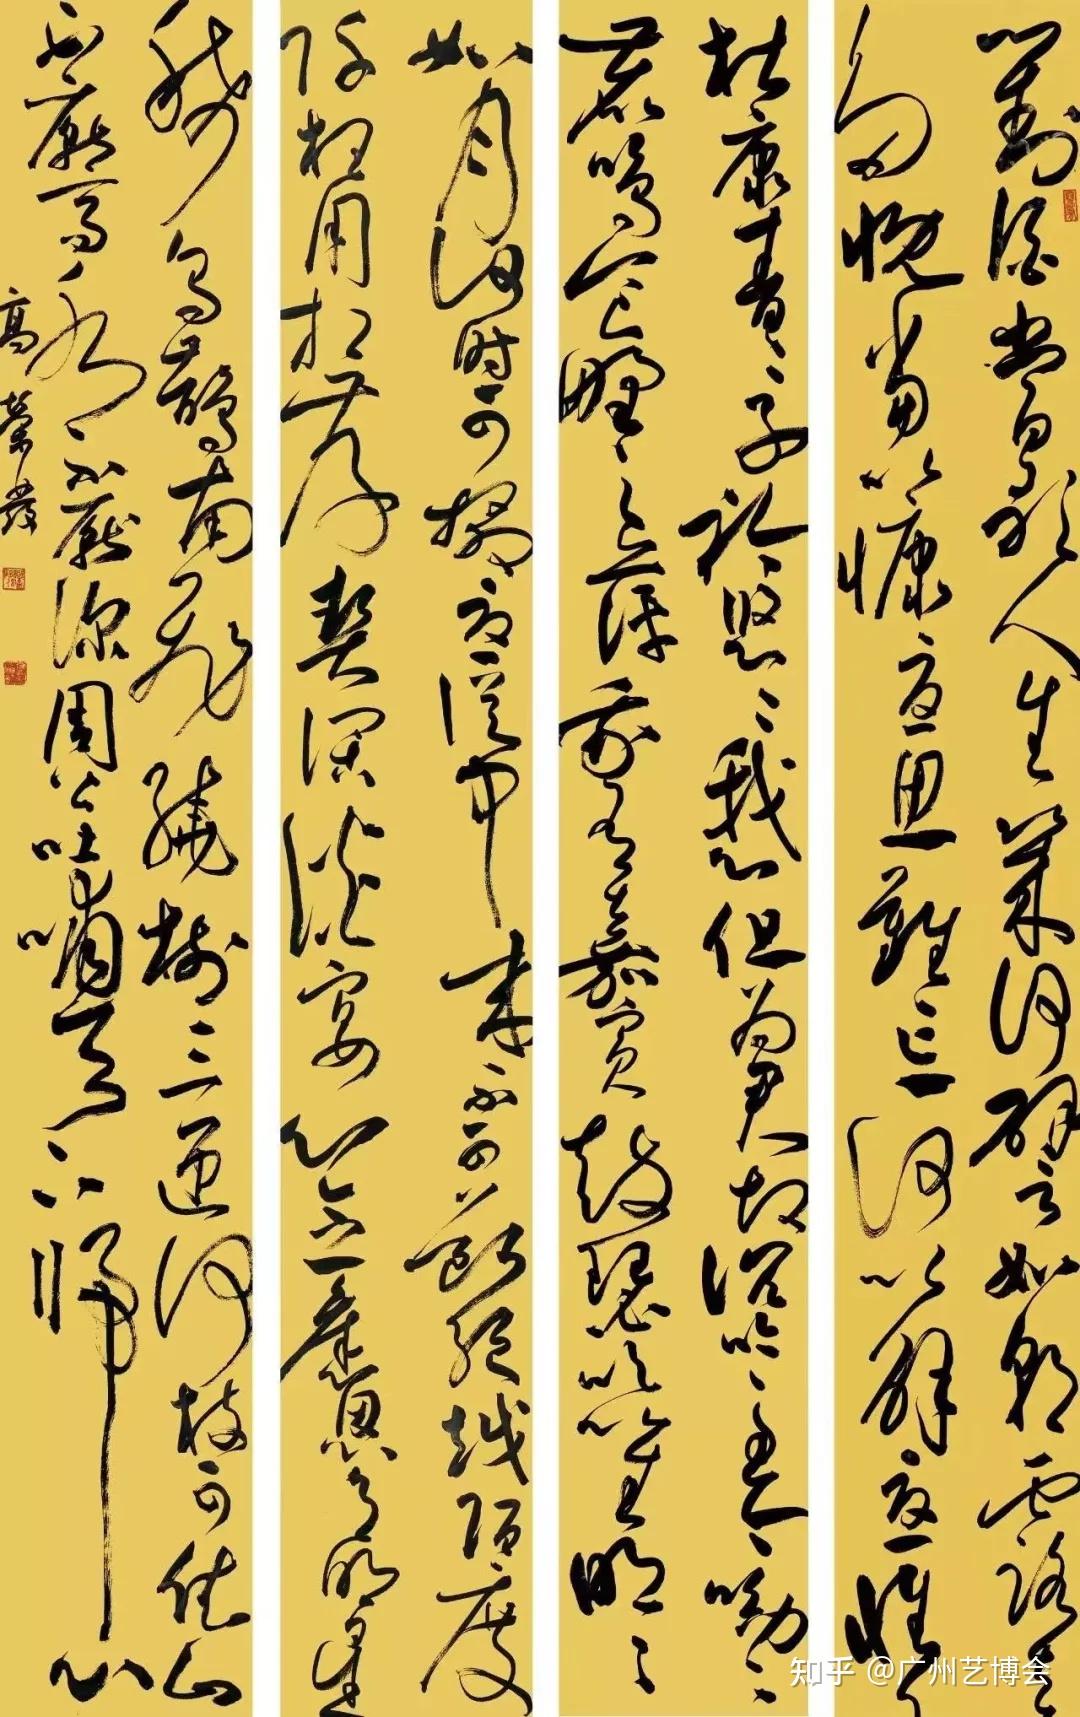 對酒當歌人生幾何譬如朝露去
多慨當以慷憂思難忘何以解憂惟有
杜康青〻子衿悠〻我心但為君故沉吟〻至今〻呦〻
鹿鳴食野〻之苹我有嘉賓鼓瑟吹笙明〻
如月何時可掇憂從中來不可斷絕越陌度
阡枉用相存契闊談宴心念舊恩月明星
稀烏鵲南飛繞樹三匝何枝可依山
不厭高水不厭深周公吐哺天下歸心
高榮發
知乎 @广州艺博会